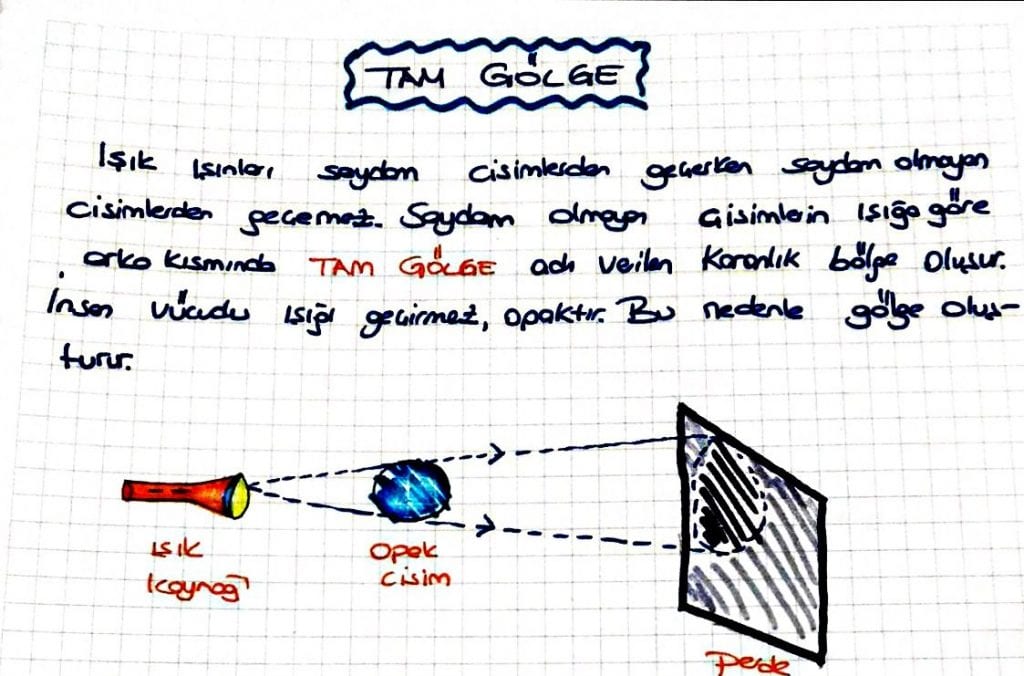 TAM GÖLGE
Işık ışınları saydam cisimlerden geçerken saydam olmayan
cisimlerden geçemez. Saydam olmayan cisimlerin ışığa göre
arka kısmında TAM GÖLGE adı verilen karanlık bölge oluşur.
İnsan vücudu ışığı geçirmez, opaktır. Bu nedenle gölge oluş-
turur.
Işık
kaynağı
Opak
cisim
Perde